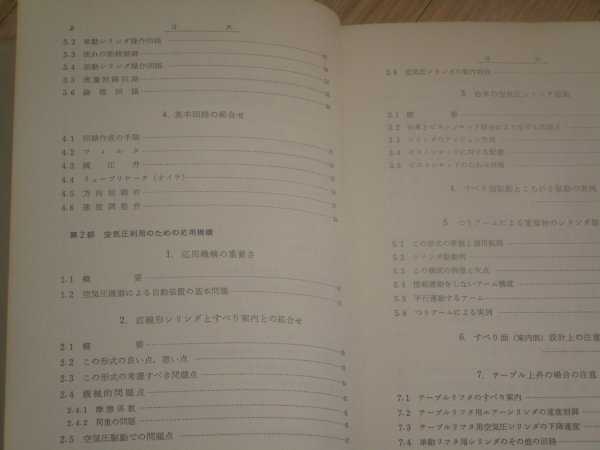 2 目 次
3.2 単動シリンダ操作回路
3.3 流れの断続制御
3.4 差動シリンダ操作回路
3.5 流量制御回路
3.6 論理回路
4. 基本回路の組合せ
4.1 回路作成の手順
4.2 フィルタ
4.3 減圧弁
4.4 リューブリケータ (オイラ)
4.5 方向制御弁
4.6 速度調整弁
第2部 空気圧利用のための応用機構
1. 応用機構の重要さ
1.1 概要
1.2 空気圧機器による自動装置の基本問題
2. 直線形シリンダとすべり案内との組合せ
2.1 概要
2.2 この形式の良い点,悪い点
2.3 この形式の考慮すべき問題点
2.4 機械的問題点
2.4.1 摩擦係数
2.4.2 荷重の問題
2.5 空気圧駆動での問題点
目 次
2.6 空気圧シリンダの動作特性
3. 台車の空気圧シリンダ駆動
3.1 概要
3.2 台車とピストンロッド結合により生ずる問題点
3.3 シリンダのクッション作用
3.4 ピストンロッドに対する配慮
3.5 ピストンロッドのたわみ対策
4. すべり面駆動ところがり駆動の実例
5. つりアームによる重量物のシリンダ駆
5.1 この形式の挙動と適用範囲
5.2 シリンダ駆動例
5.3 この構成の特徴と欠点
5.4 揺動運動をしないアーム構成
5.5 平行運動するアーム
5.6 つりアームによる実例
6. すべり面 (案内面) 設計上の注意
7. テーブル上昇の場合の注意
7.1 テーブルリフタのすべり案内
7.2 テーブルリフタ用エアーシリンダの速度制御
7.3 テーブルリフタ用空気圧シリンダの下降速度
7.4 単動リフタ用シリンダのその他の回路